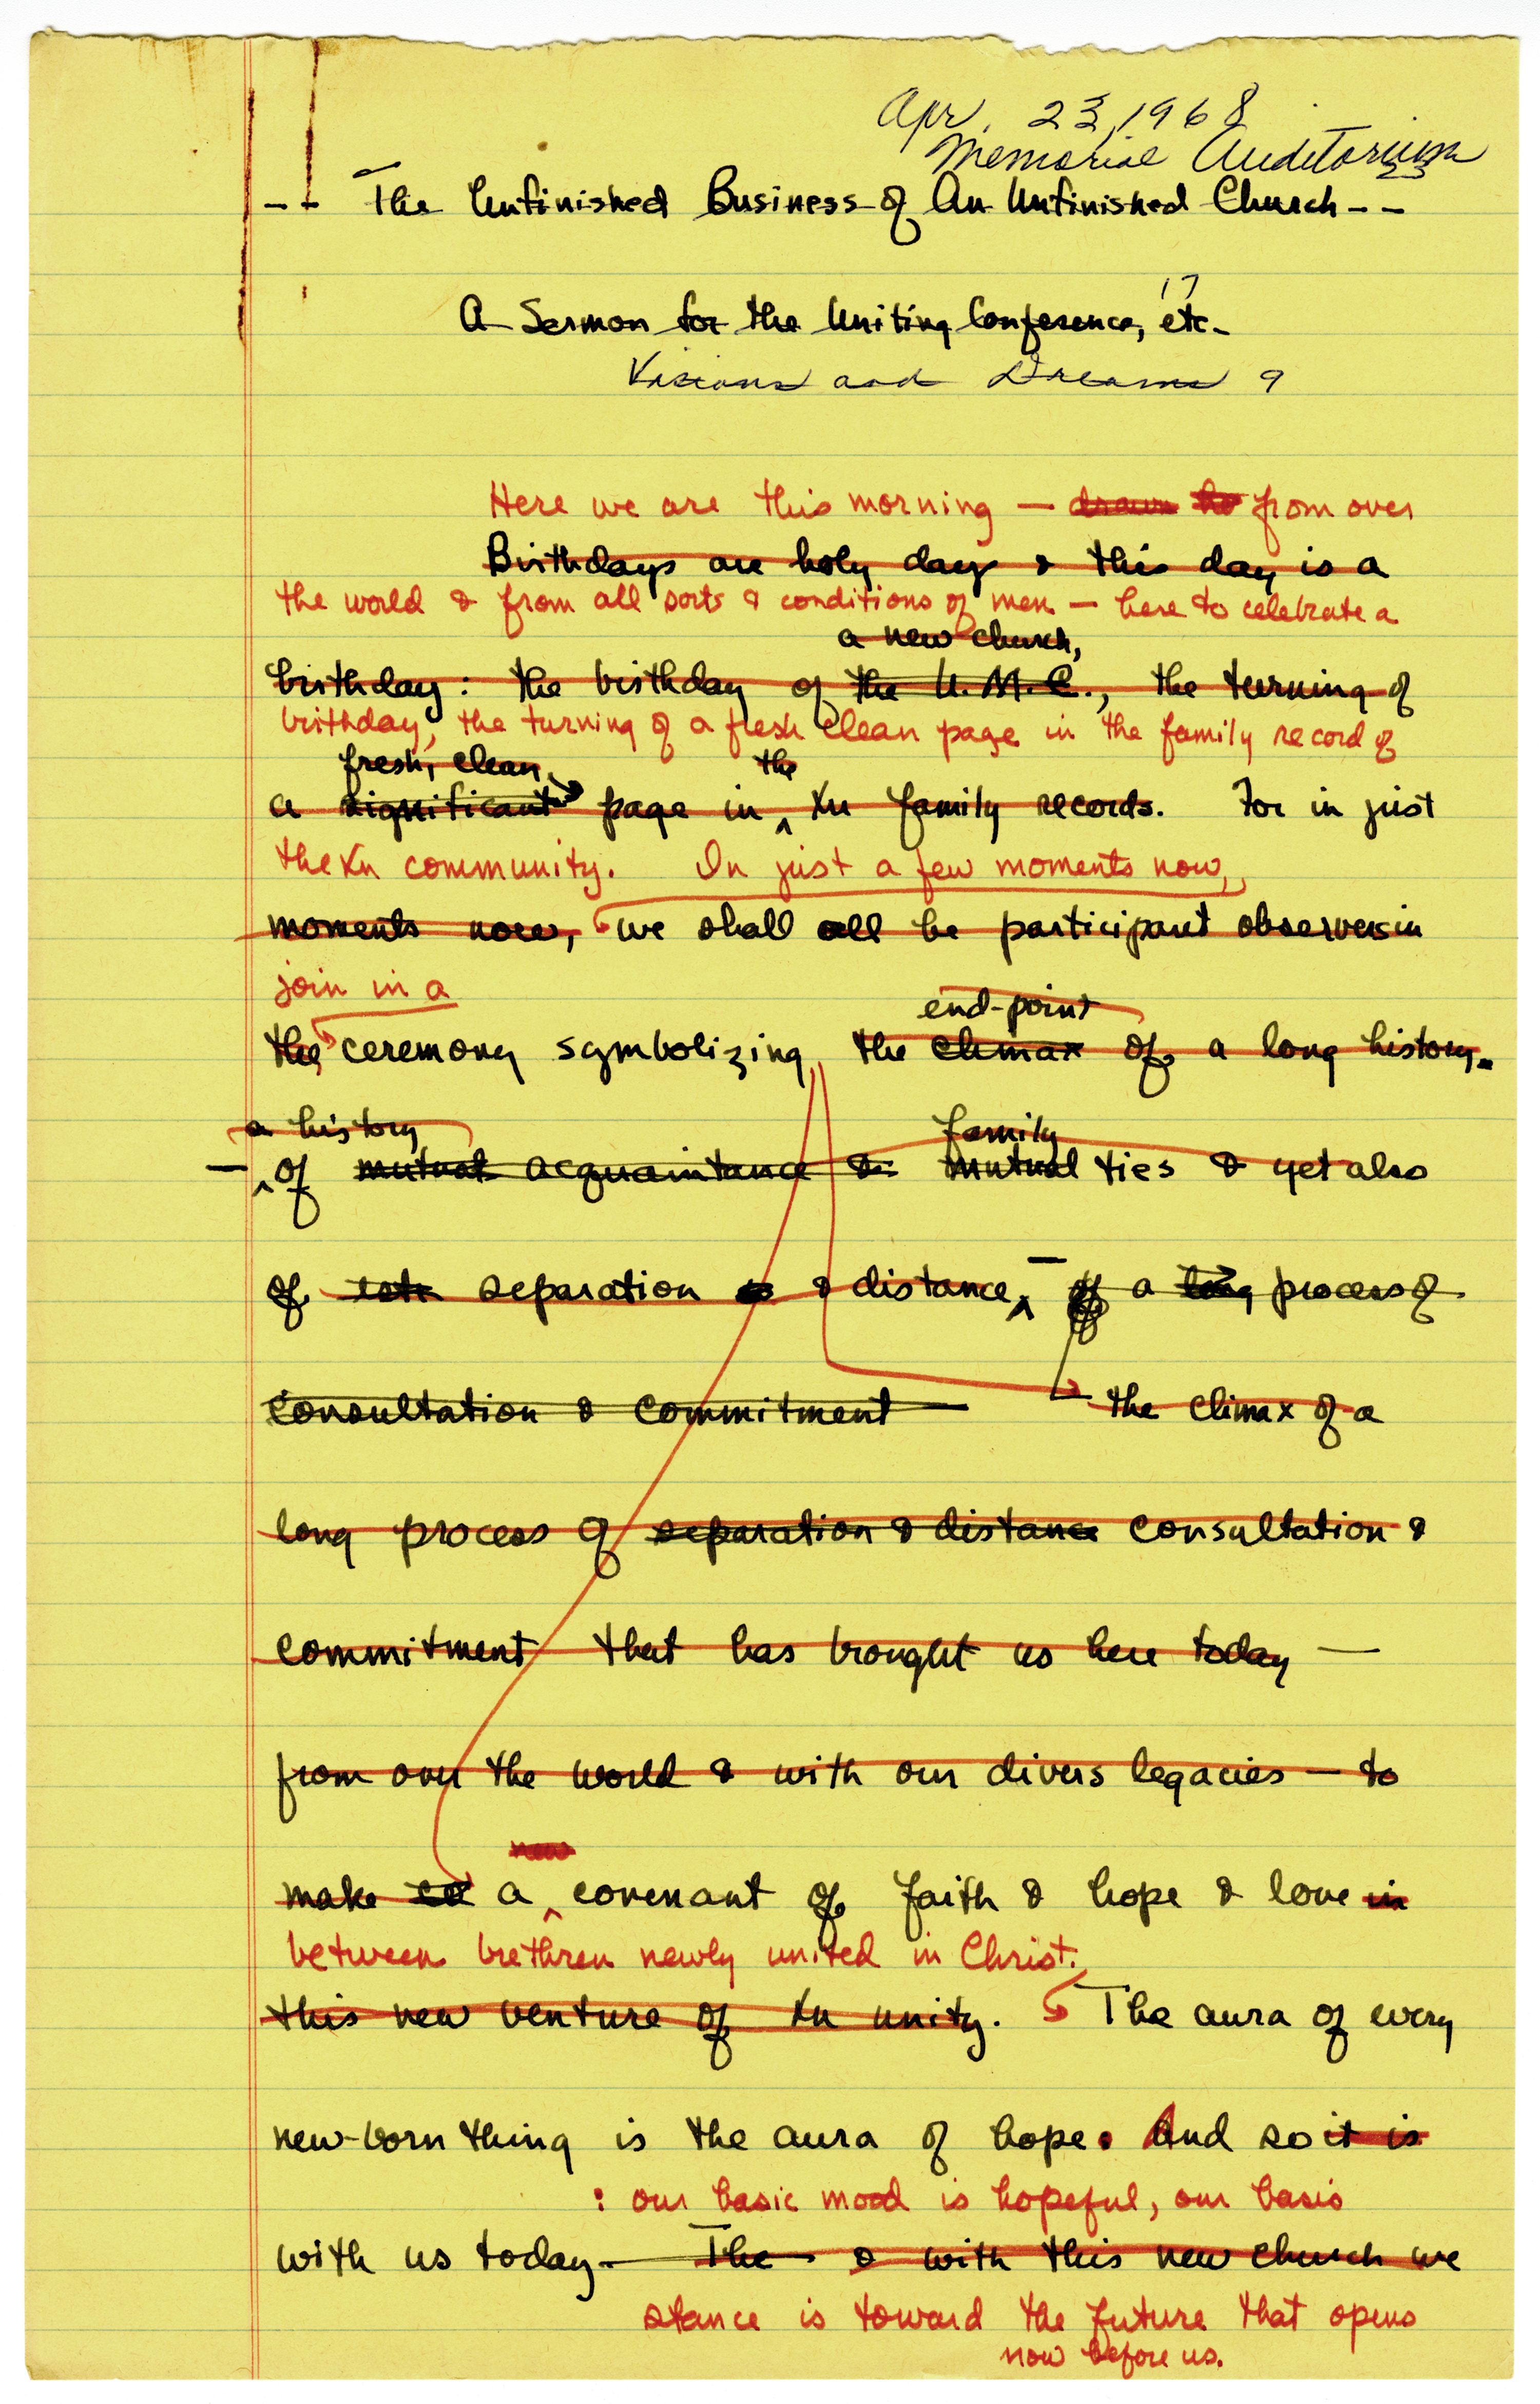 Apr. 23, 1968
Memorial Auditorium
-- The Unfinished Business of An Unfinished Church --
17
A Sermon for the Uniting Conference, etc.
Visions and Dreams 9
Here we are this morning — drawn to from over
Birthdays are holy days & this day is a
the world & from all sorts & conditions of men — here to celebrate a
a new church,
birthday: the birthday of the U.M.C., the turning of
birthday, the turning of a fresh clean page in the family record of
fresh, clean the
a significant page in ^ Xn family records. For in just
the Xn community. In just a few moments now,
moments now, we shall all be participant observers in
join in a
end-point
the ceremony symbolizing the climax of a long history.
a history family
— ^ of mutual acquaintance & mutual ties & yet also
of separation & distance, ^ — of a long process of
consultation & commitment — the climax of a
long process of separation & distance consultation &
commitment that has brought us here today —
from over the world & with our divers legacies — to
new
make a ^ covenant of faith & hope & love in
between brethren newly united in Christ.
this new venture of Xn unity. The aura of every
new-born thing is the aura of hope. And so it is
: our basic mood is hopeful, our basis
with us today. — The & with this new church we
stance is toward the future that opens
now before us.